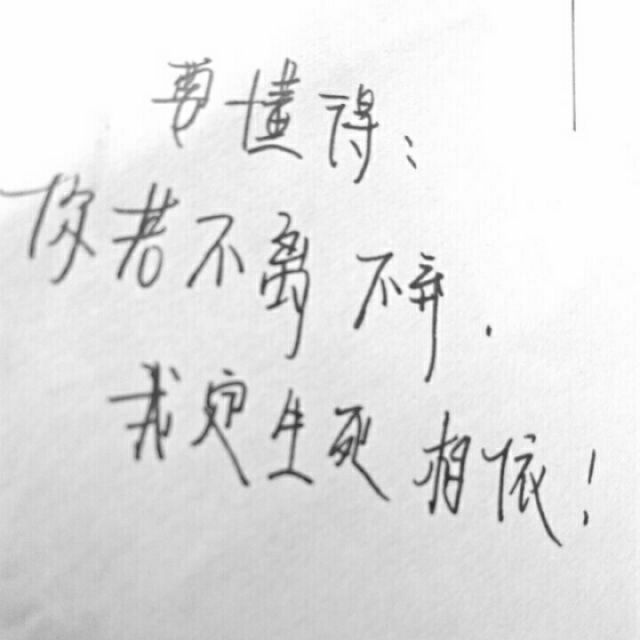 要懂得：
你若不离不弃．
我定生死相依！